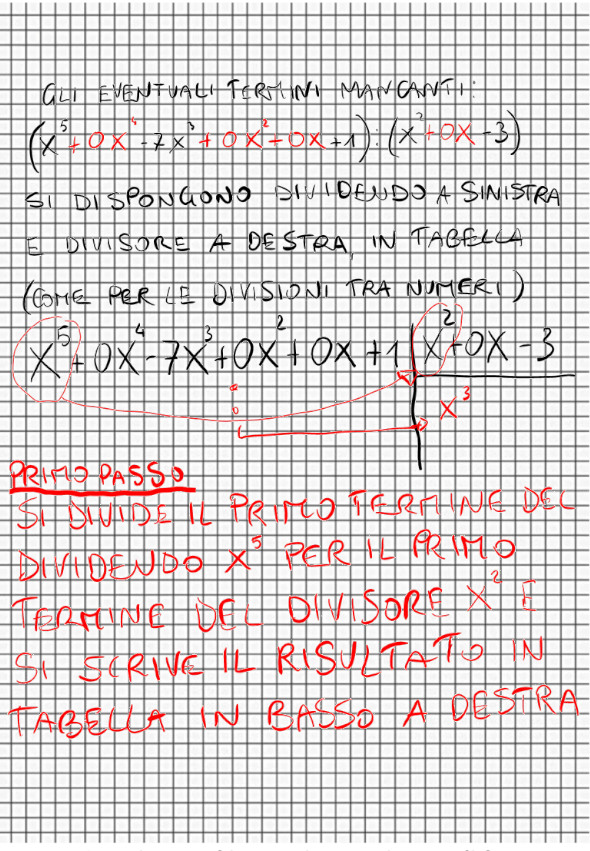 GLI EVENTUALI TERMINI MANCANTI:
(x⁵+0x⁴-7x³+0x²+0x+1):(x²+0x-3)
SI DISPONGONO DIVIDENDO A SINISTRA
E DIVISORE A DESTRA, IN TABELLA
(COME PER LE DIVISIONI TRA NUMERI)
x⁵+0x⁴-7x³+0x²+0x+1 | x²+0x-3
x³
PRIMO PASSO
SI DIVIDE IL PRIMO TERMINE DEL
DIVIDENDO x⁵ PER IL PRIMO
TERMINE DEL DIVISORE x² E
SI SCRIVE IL RISULTATO IN
TABELLA IN BASSO A DESTRA